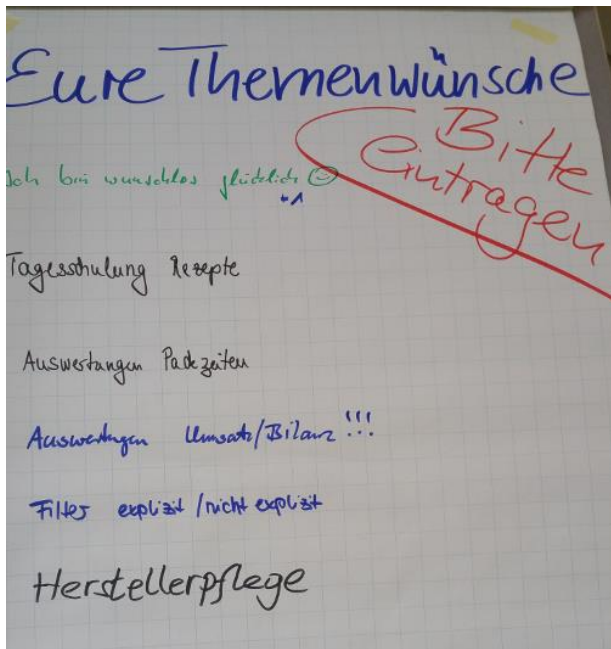 Eure Themenwünsche
Bitte
eintragen
Ich bin wunschlos glücklich ☺
+1
Tagesschulung Rezepte
Auswertungen Packzeiten
Auswertungen Umsatz/Bilanz !!!
Filter explizit / nicht explizit
Herstellerpflege